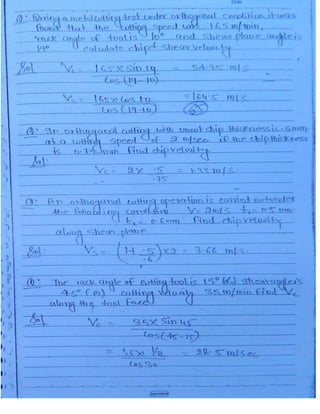 Q: During a metal cutting test under orthogonal condition it was
found that the cutting speed was 165 m/min,
rack angle of tool is 10° and shear plane angle is
19° calculate chip & shear velocity
Sol: Vc = 165 × Sin 19 = 54.35 m/s
cos(19-10)
Vs = 165 × Cos 10 = 164.5 m/s
cos(19-10)
Q: In orthogonal cutting with uncut chip thickness is .5mm
at a cutting speed of 2 m/sec if the chip thickness
is 0.75 mm find chip velocity
Sol: Vc = 2 × .5 = 1.33 m/s
.75
Q: An orthogonal cutting operation is carried out under
the following condition V = 2m/s t1 = 0.5 mm
t2 = 0.6mm find chip velocity
along shear plane.
Sol: Vs = (1+ .5/.6) × 2 = 3.66 m/s.
Q: The rack angle of cutting tool is 15° (α) shear angle is
45° cutting velocity 35 m/min find Vc
along the tool face
Sol Vc = 35 × Sin 45
cos(45-15)
= 35 × 1/√2 = 28.5 m/sec
cos 30